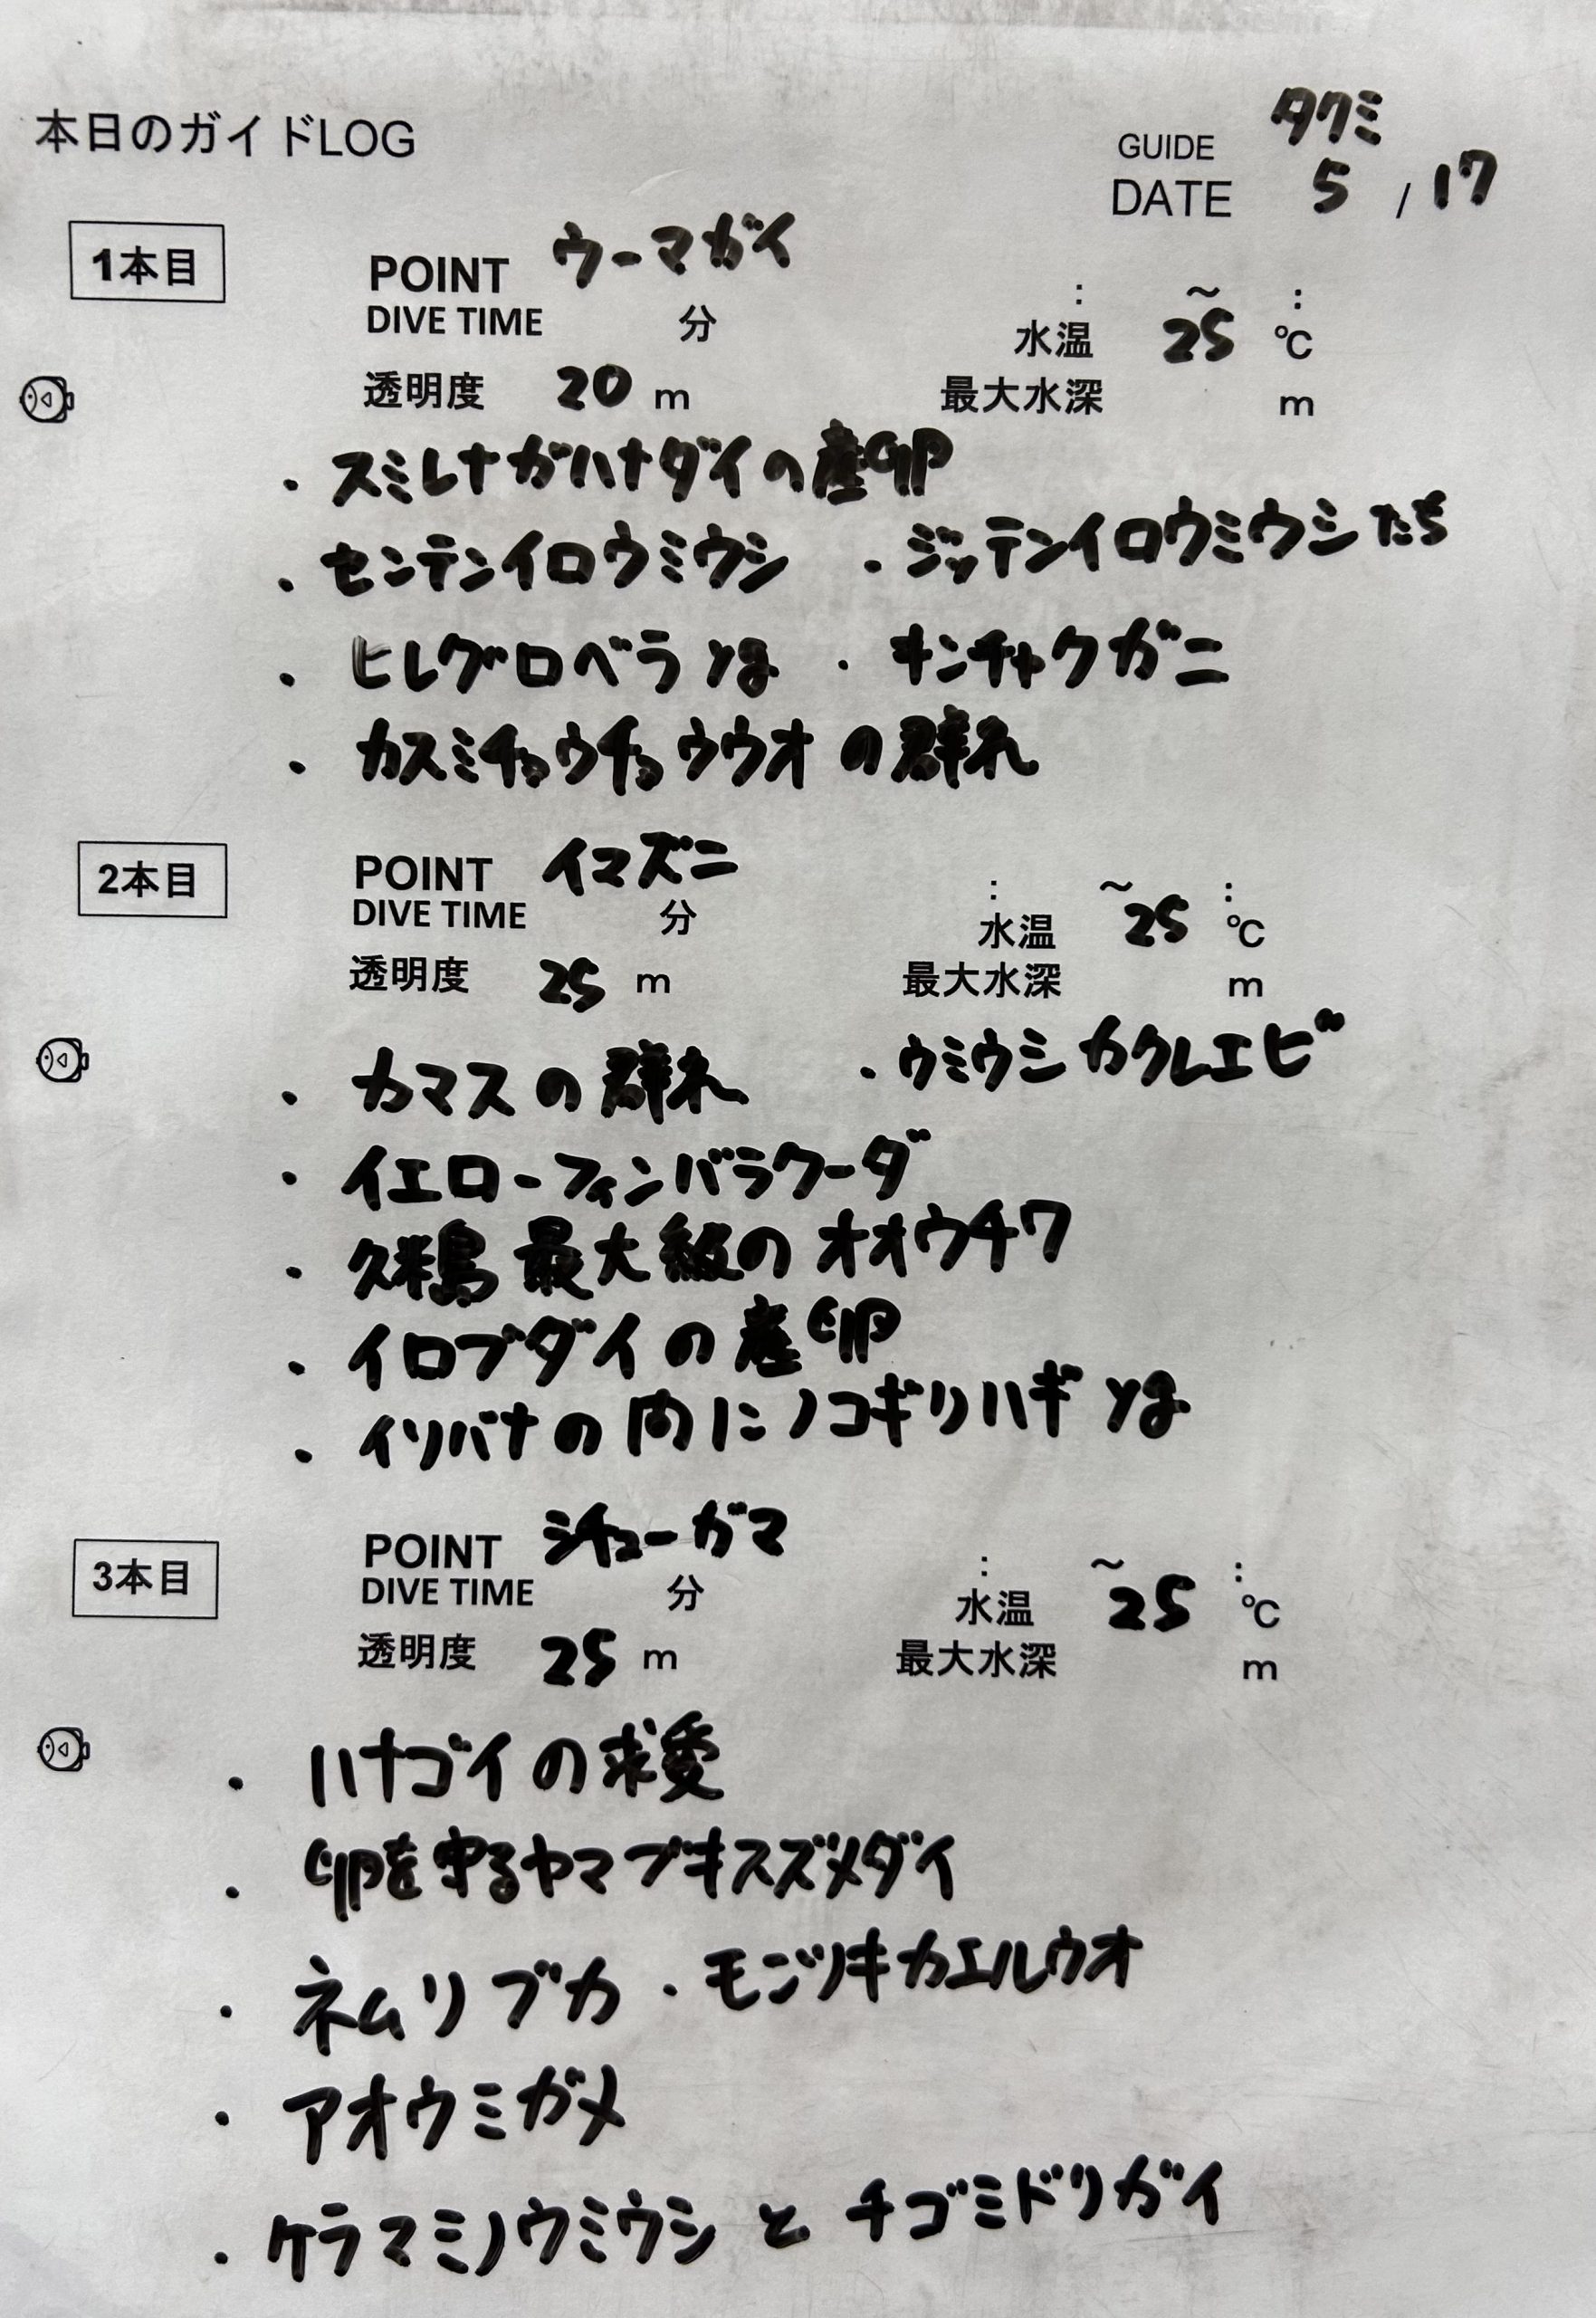 本日のガイドLOG
GUIDE タクミ
DATE 5 / 17
1本目
POINT ウーマガイ
: ~ :
DIVE TIME 分 水温 25 ℃
透明度 20 m 最大水深 m
・スミレナガハナダイの産卵
・センテンイロウミウシ ・ジッテンイロウミウシたち
・ヒレグロベラ yg ・キンチャクガニ
・カスミチョウチョウウオの群れ
2本目
POINT イマズニ
: ~ :
DIVE TIME 分 水温 25 ℃
透明度 25 m 最大水深 m
・カマスの群れ ・ウミウシカクレエビ
・イエローフィンバラクーダ
・久米島最大級のオオウチワ
・イロブダイの産卵
・イソバナの内にノコギリハギ yg
3本目
POINT シチューガマ
: ~ :
DIVE TIME 分 水温 25 ℃
透明度 25 m 最大水深 m
・ハナゴイの求愛
・卵を守るヤマブキスズメダイ
・ネムリブカ ・モンツキカエルウオ
・アオウミガメ
・ケラマミノウミウシ と チゴミドリガイ